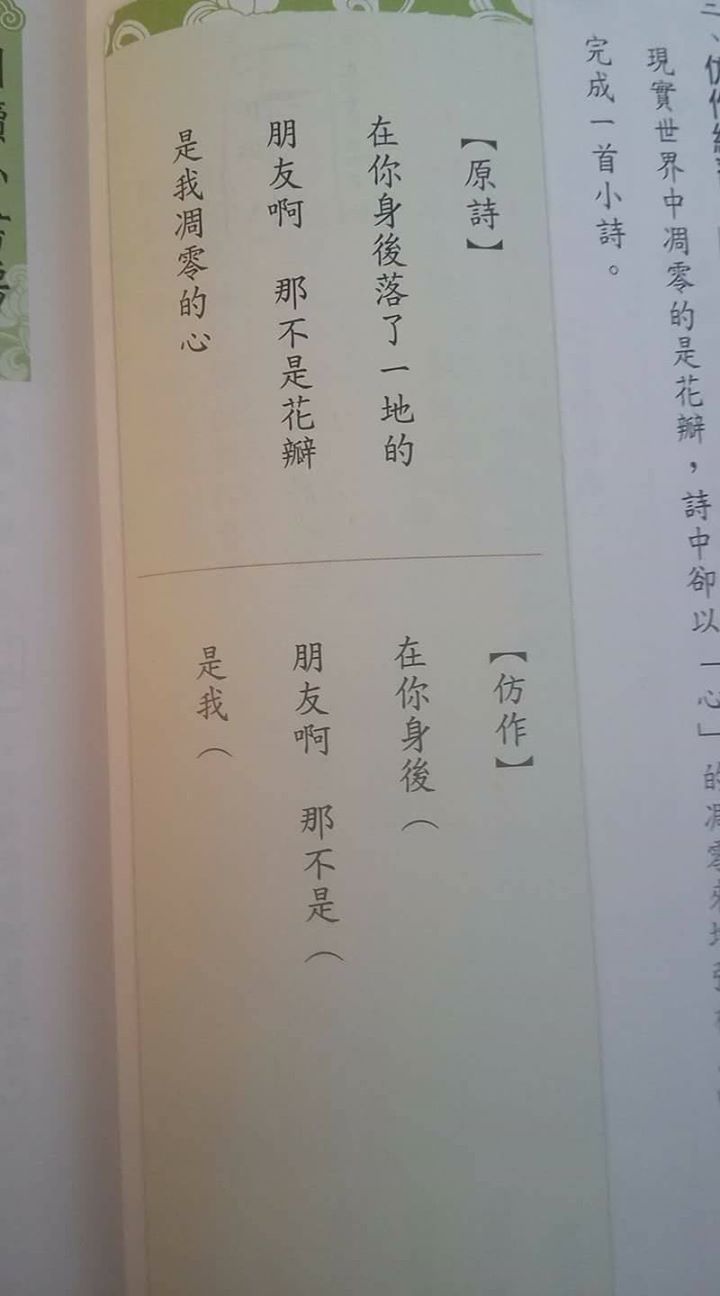 現實世界中凋零的是花瓣,詩中卻以「心」的凋零
完成一首小詩。
【原詩】
在你身後落了一地的
朋友啊 那不是花瓣
是我凋零的心
【仿作】
在你身後(
朋友啊 那不是(
是我(